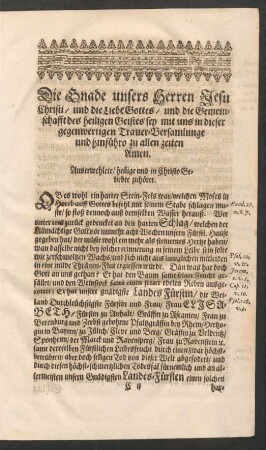 Die Gnade unsers Herren Jesu
Christi/ und die Liebe Gottes/ und die Gemein-
schafft des heiligen Geistes sey mit uns in dieser
gegenwertigen Trauer-Versamlunge
und hinführo zu allen zeiten
Amen.
Auserwehlete/ heilige und in Christo Ge-
liebte zuhörer.
OBes wohl ein harter Stein-Fels war/ welchen Moses in
Horeb aus Gottes befehl mit seinem Stabe schlagen mu-
ste/ so floß dennoch aus demselben Wasser heraus. Wer
unter uns zurück gedencket an den harten Schlag/ welchen der
Allmächtige Gott vor nunmehr acht Wochen unserm Fürstl. Hause
gegeben hat/ der müste wohl ein mehr als steinernes Hertz haben/
wan dasselbe nicht bey solcher erinnerung in seinem Leibe sein solte
wie zerschmoltzen Wachs/ und sich nicht aus innigstem mitleiden
in eine milde Threhnen-Flut ergiessen würde. Dan was hat doch
Gott an uns gethan? Er hat den Baum samt seiner Frucht ge-
fället/ und den Weinstock samt einem seiner edelen Reben ausge-
rottet! Er hat unsere gnädigste Landes Fürstin/ die Wei-
land Durchleuchtigste Fürstin und Frau/ Frau ELISA-
BETH/ Fürstin zu Anhalt/ Gräffin zu Ascanien/ Frau zu
Bernburg und Zerbst gebohrne Pfaltzgräffin bey Rhein/ Hertzo-
gin in Bayern/ zu Jülich/ Cleve und Berg/ Gräffin zu Veldentz/
Sponheim/ der Marck und Ravensberg/ Frau zu Ravenstein ꝛc.
samt deroselben Fürstlichen Leibesfrucht durch einen zwar höchst-
aber doch seligen Tod von dieser Welt abgefodert/ und
durch diesen höchst-schmertzlichen Todesfal fürnemlich an un aller-
meisten unsern Gnädigsten Landes-Fürsten einen solchen
Exod. 17.
v. 6. 7.